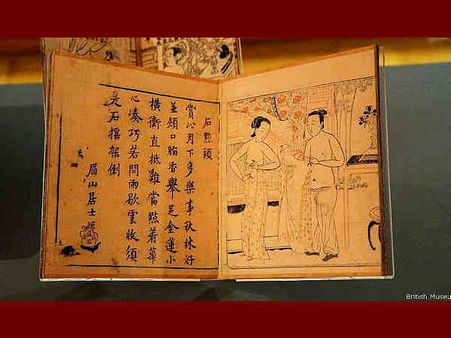 石點頭
賞心月下多樂事秋林好
並頰口脂香舉足金蓮小
橫衝直抵難當點着
心湊巧若問雨歇雲收須
是石架倒
眉山居士
British Museu